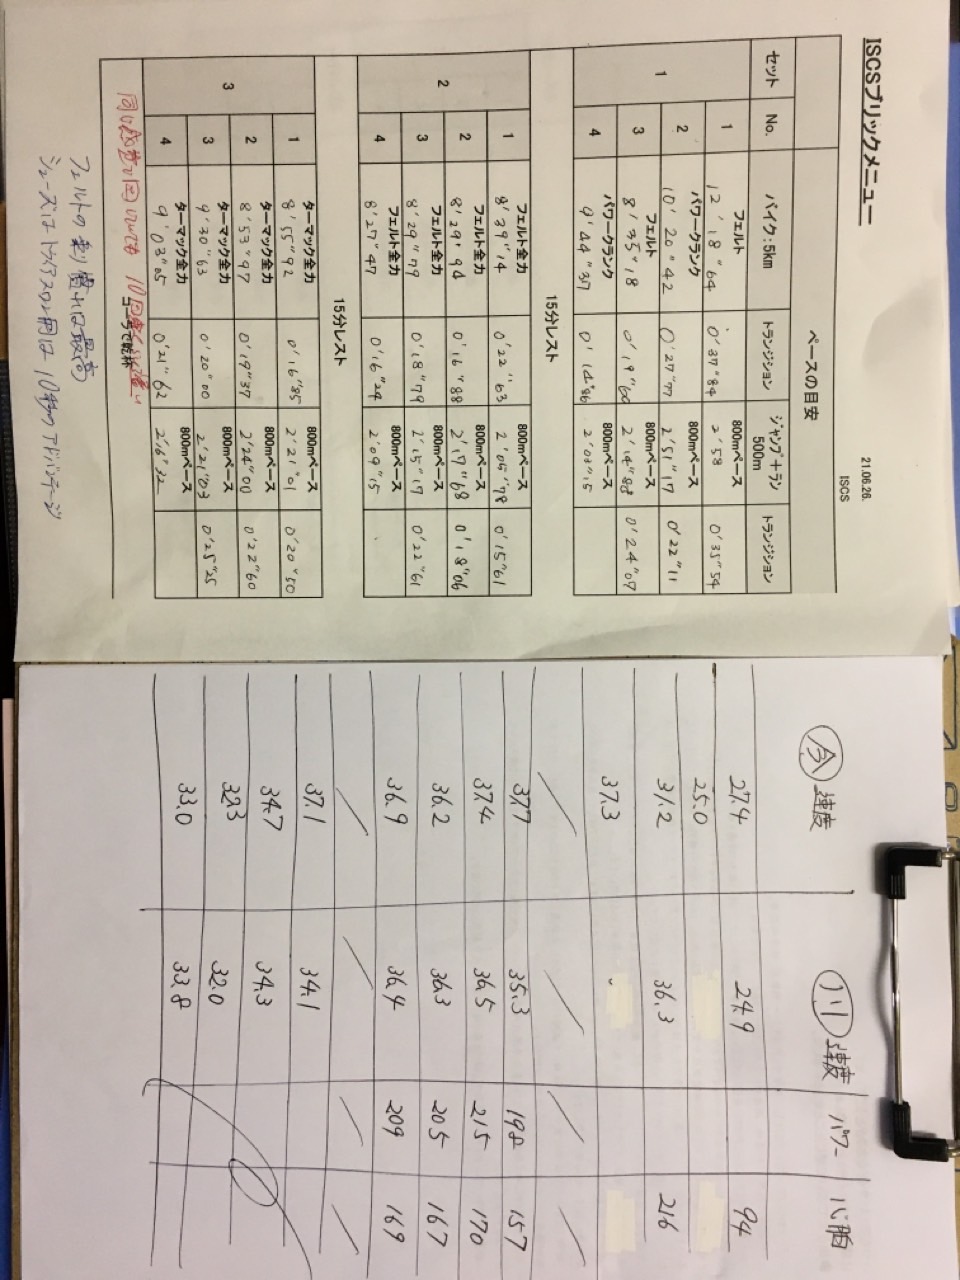 ISCSブリックメニュー
21.06.26.
ISCS
ペースの目安
セット No. バイク:5km トランジション ジャンプ+ラン 500m トランジション
1 1 フェルト 12'18"64 0'37"84 800mペース 2'58 0'35"54
2 パワークランク 10'20"42 0'27"77 800mペース 2'51"17 0'22"11
3 フェルト 8'35"18 0'19"60 800mペース 2'14"88 0'24"07
4 パワークランク 9'44"37 0'14"86 800mペース 2'03"15
15分レスト
2 1 フェルト全力 8'39"14 0'22"63 800mペース 2'05"78 0'15"61
2 フェルト全力 8'29"94 0'16"88 800mペース 2'17"68 0'18"06
3 フェルト全力 8'29"79 0'18"79 800mペース 2'15"17 0'22"61
4 フェルト全力 8'27"47 0'16"24 800mペース 2'09"15
15分レスト
3 1 ターマック全力 8'55"92 0'16"85 800mペース 2'21"01 0'20"50
2 ターマック全力 8'53"97 0'19"37 800mペース 2'24"00 0'22"60
3 ターマック全力 9'30"63 0'20"00 800mペース 2'21"03 0'25"25
4 ターマック全力 9'03"05 0'21"62 800mペース 2'16"32
コーラで乾杯
同じ感覚で回していても 10回転くらい違い
フェルトの乗り慣れは最高
シューズはトライアスロン用は10秒のアドバンテージ
今 速度 川 速度 パワー 心拍
27.4 24.9 94
25.0
31.2 36.3 216
37.3
37.7 35.3 198 157
37.4 36.5 215 170
36.2 36.3 205 167
36.9 36.4 209 169
37.1 34.1
34.7 34.3
32.3 32.0
33.0 33.8